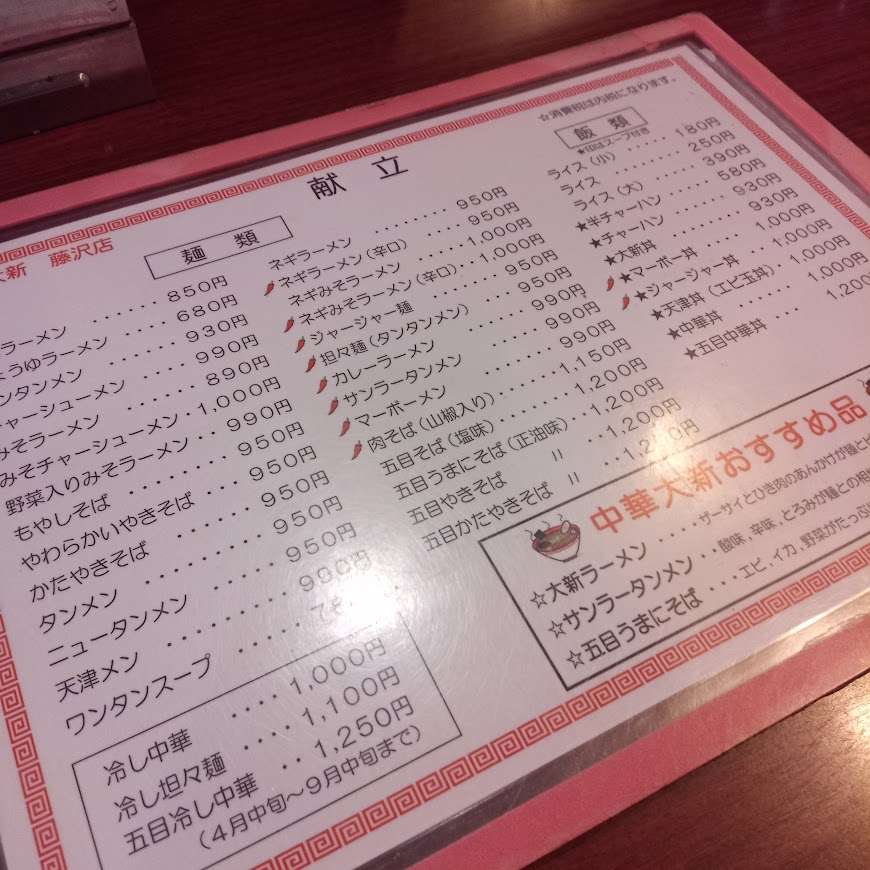 献 立
大新 藤沢店
麺 類
ラーメン ・・・・・・ 850円
ょうゆラーメン ・・・・ 680円
ンタンメン ・・・・・・ 930円
チャーシューメン ・・・・ 990円
みそラーメン ・・・・・・ 890円
みそチャーシューメン・1,000円
野菜入りみそラーメン・・ 990円
もやしそば ・・・・・・ 950円
やわらかいやきそば・・ 950円
かたやきそば ・・・・・ 950円
タンメン ・・・・・・・ 950円
ニュータンメン ・・・・ 950円
天津メン ・・・・・・ 990円
ワンタンスープ ・・・・
冷し中華 ・・・・ 1,000円
冷し坦々麺 ・・・・ 1,100円
五目冷し中華 ・・ 1,250円
（4月中旬～9月中旬まで）
ネギラーメン ・・・・・・・ 950円
ネギラーメン（辛口）・・・・ 950円
ネギみそラーメン ・・・・ 1,000円
ネギみそラーメン（辛口）・1,000円
ジャージャー麺 ・・・・・ 950円
担々麺（タンタンメン）・・ 950円
カレーラーメン ・・・・・ 990円
サンラータンメン ・・・・ 990円
マーボーメン ・・・・・・ 990円
肉そば（山椒入り）・・・・ 1,150円
五目そば（塩味）・・・・・ 1,200円
五目うまにそば（正油味）・・1,200円
五目やきそば 〃 ・・1,200円
五目かたやきそば 〃 ・・1,200円
☆消費税は内税になります。
飯 類
★印はスープ付き
ライス（小）・・・・・ 180円
ライス ・・・・・・・ 250円
ライス（大）・・・・・ 390円
★半チャーハン ・・・・ 580円
★チャーハン ・・・・・ 930円
★大新丼 ・・・・・・ 930円
★マーボー丼 ・・・・ 1,000円
★ジャージャー丼 ・・・ 1,000円
★天津丼（エビ玉丼）・1,000円
★中華丼 ・・・・・・ 1,000円
★五目中華丼 ・・・・ 1,200
中華大新おすすめ品
☆大新ラーメン ・・・・・ザーサイとひき肉のあんかけが麺と
☆サンラータンメン ・・酸味，辛味，とろみが麺との相
☆五目うまにそば ・・・エビ，イカ，野菜がたっぷ